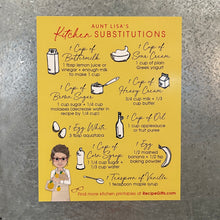 AUNT LISA'S
Kitchen SUBSTITUTIONS
1 Cup of
Buttermilk
1 tbsp lemon juice or
vinegar + enough milk
to make 1 cup
1 Cup of
Sour Cream
1 cup of plain
Greek yogurt
1 Cup of
Brown Sugar
1 cup sugar + 1/4 cup
molasses (decrease water in
recipe by 1/4 cup)
1 Cup of
Heavy Cream
1 Egg White
2 tbsp aquafaba
1 Cup of Oil
1 cup applesauce
or fruit puree
1 Cup of
Corn Syrup
1 Egg
1/2 mashed
banana + 1/2 tsp
baking powder
1 Teaspoon of Vanilla
1 teaspoon maple syrup
Find more kitchen printables at RecipeGifts.com